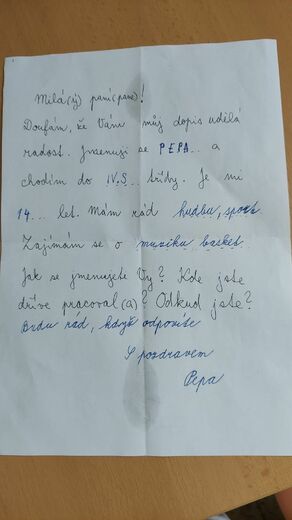 Milá(ý) paní(pane)!
Doufám, že Vám můj dopis udělá
radost. Jmenuji se PEPA... a
chodím do IV.S... třídy. Je mi
14... let. Mám rád hudbu, sport
Zajímám se o muziku, basket.
Jak se jmenujete Vy? Kde jste
dříve pracoval(a)? Odkud jste?
Budu rád, když odpovíte
S pozdravem
Pepa